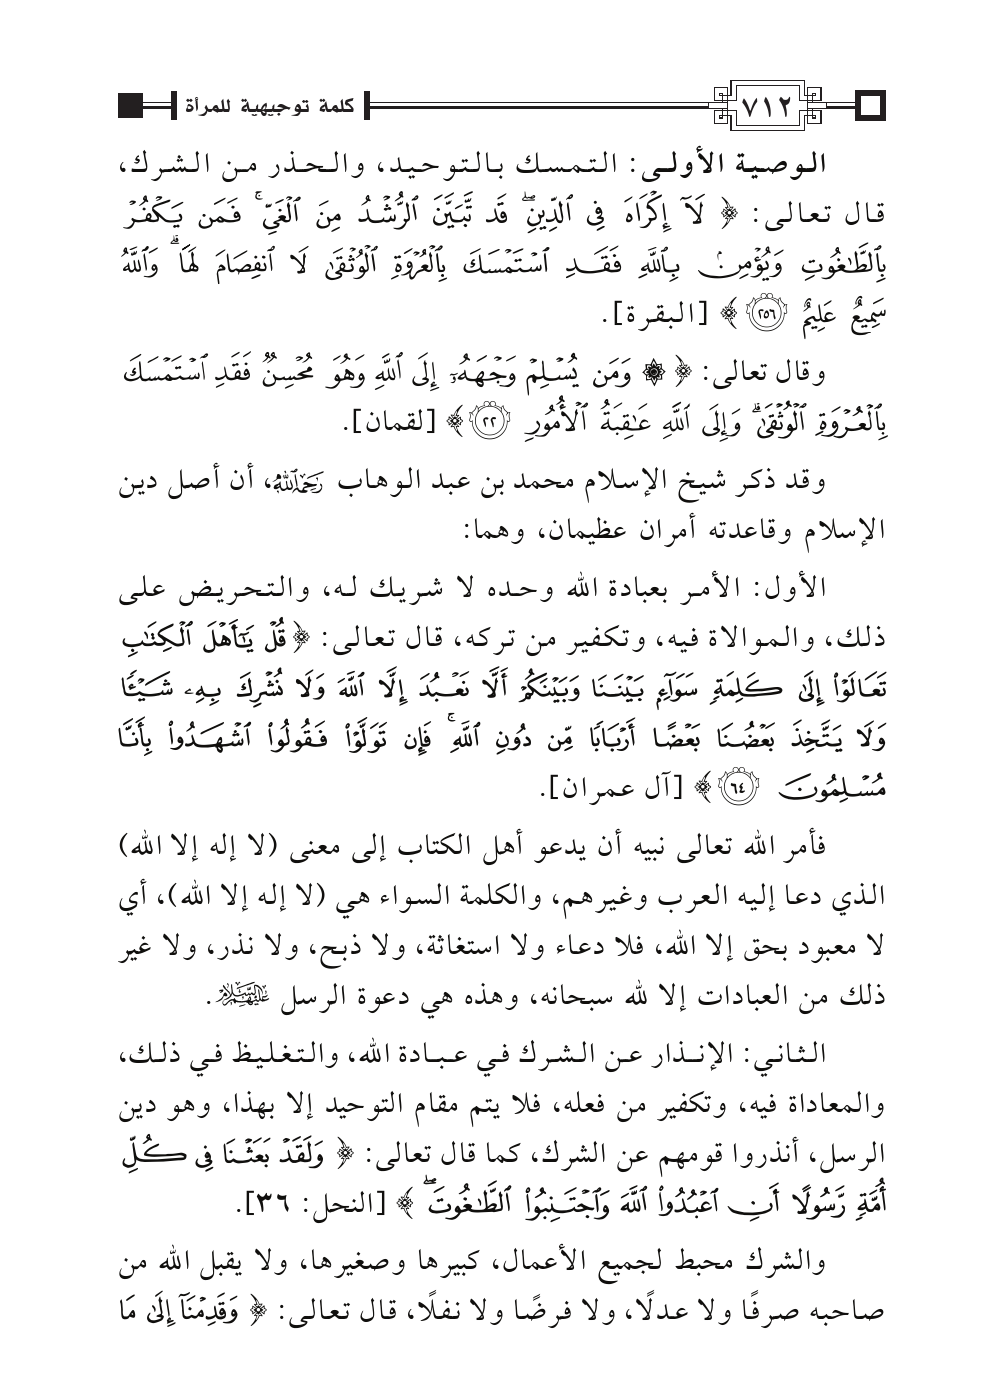 ٧١٢ كلمة توجيهية للمرأة
الوصية الأولى: التمسك بالتوحيد، والحذر من الشرك،
قال تعالى: ﴿ لَآ إِكْرَاهَ فِى ٱلدِّينِۖ قَد تَّبَيَّنَ ٱلرُّشْدُ مِنَ ٱلْغَىِّۚ فَمَن يَكْفُرْ
بِٱلطَّٰغُوتِ وَيُؤْمِنۢ بِٱللَّهِ فَقَدِ ٱسْتَمْسَكَ بِٱلْعُرْوَةِ ٱلْوُثْقَىٰ لَا ٱنفِصَامَ لَهَاۗ وَٱللَّهُ
سَمِيعٌ عَلِيمٌ ٢٥٦ ﴾ [البقرة].
وقال تعالى: ﴿ ۞ وَمَن يُسْلِمْ وَجْهَهُۥٓ إِلَى ٱللَّهِ وَهُوَ مُحْسِنٌ فَقَدِ ٱسْتَمْسَكَ
بِٱلْعُرْوَةِ ٱلْوُثْقَىٰۗ وَإِلَى ٱللَّهِ عَٰقِبَةُ ٱلْأُمُورِ ٢٢ ﴾ [لقمان].
وقد ذكر شيخ الإسلام محمد بن عبد الوهاب رَحِمَهُ ٱللَّهُ، أن أصل دين
الإسلام وقاعدته أمران عظيمان، وهما:
الأول: الأمر بعبادة الله وحده لا شريك له، والتحريض على
ذلك، والموالاة فيه، وتكفير من تركه، قال تعالى: ﴿ قُلْ يَٰٓأَهْلَ ٱلْكِتَٰبِ
تَعَالَوْا۟ إِلَىٰ كَلِمَةٍ سَوَآءٍۭ بَيْنَنَا وَبَيْنَكُمْ أَلَّا نَعْبُدَ إِلَّا ٱللَّهَ وَلَا نُشْرِكَ بِهِۦ شَيْـًٔا
وَلَا يَتَّخِذَ بَعْضُنَا بَعْضًا أَرْبَابًا مِّن دُونِ ٱللَّهِۚ فَإِن تَوَلَّوْا۟ فَقُولُوا۟ ٱشْهَدُوا۟ بِأَنَّا
مُسْلِمُونَ ٦٤ ﴾ [آل عمران].
فأمر الله تعالى نبيه أن يدعو أهل الكتاب إلى معنى (لا إله إلا الله)
الذي دعا إليه العرب وغيرهم، والكلمة السواء هي (لا إله إلا الله)، أي
لا معبود بحق إلا الله، فلا دعاء ولا استغاثة، ولا ذبح، ولا نذر، ولا غير
ذلك من العبادات إلا لله سبحانه، وهذه هي دعوة الرسل عَلَيْهِمُ السَّلَامُ.
الثاني: الإنذار عن الشرك في عبادة الله، والتغليظ في ذلك،
والمعاداة فيه، وتكفير من فعله، فلا يتم مقام التوحيد إلا بهذا، وهو دين
الرسل، أنذروا قومهم عن الشرك، كما قال تعالى: ﴿ وَلَقَدْ بَعَثْنَا فِى كُلِّ
أُمَّةٍ رَّسُولًا أَنِ ٱعْبُدُوا۟ ٱللَّهَ وَٱجْتَنِبُوا۟ ٱلطَّٰغُوتَۖ ﴾ [النحل: ٣٦].
والشرك محبط لجميع الأعمال، كبيرها وصغيرها، ولا يقبل الله من
صاحبه صرفًا ولا عدلًا، ولا فرضًا ولا نفلًا، قال تعالى: ﴿ وَقَدِمْنَآ إِلَىٰ مَا